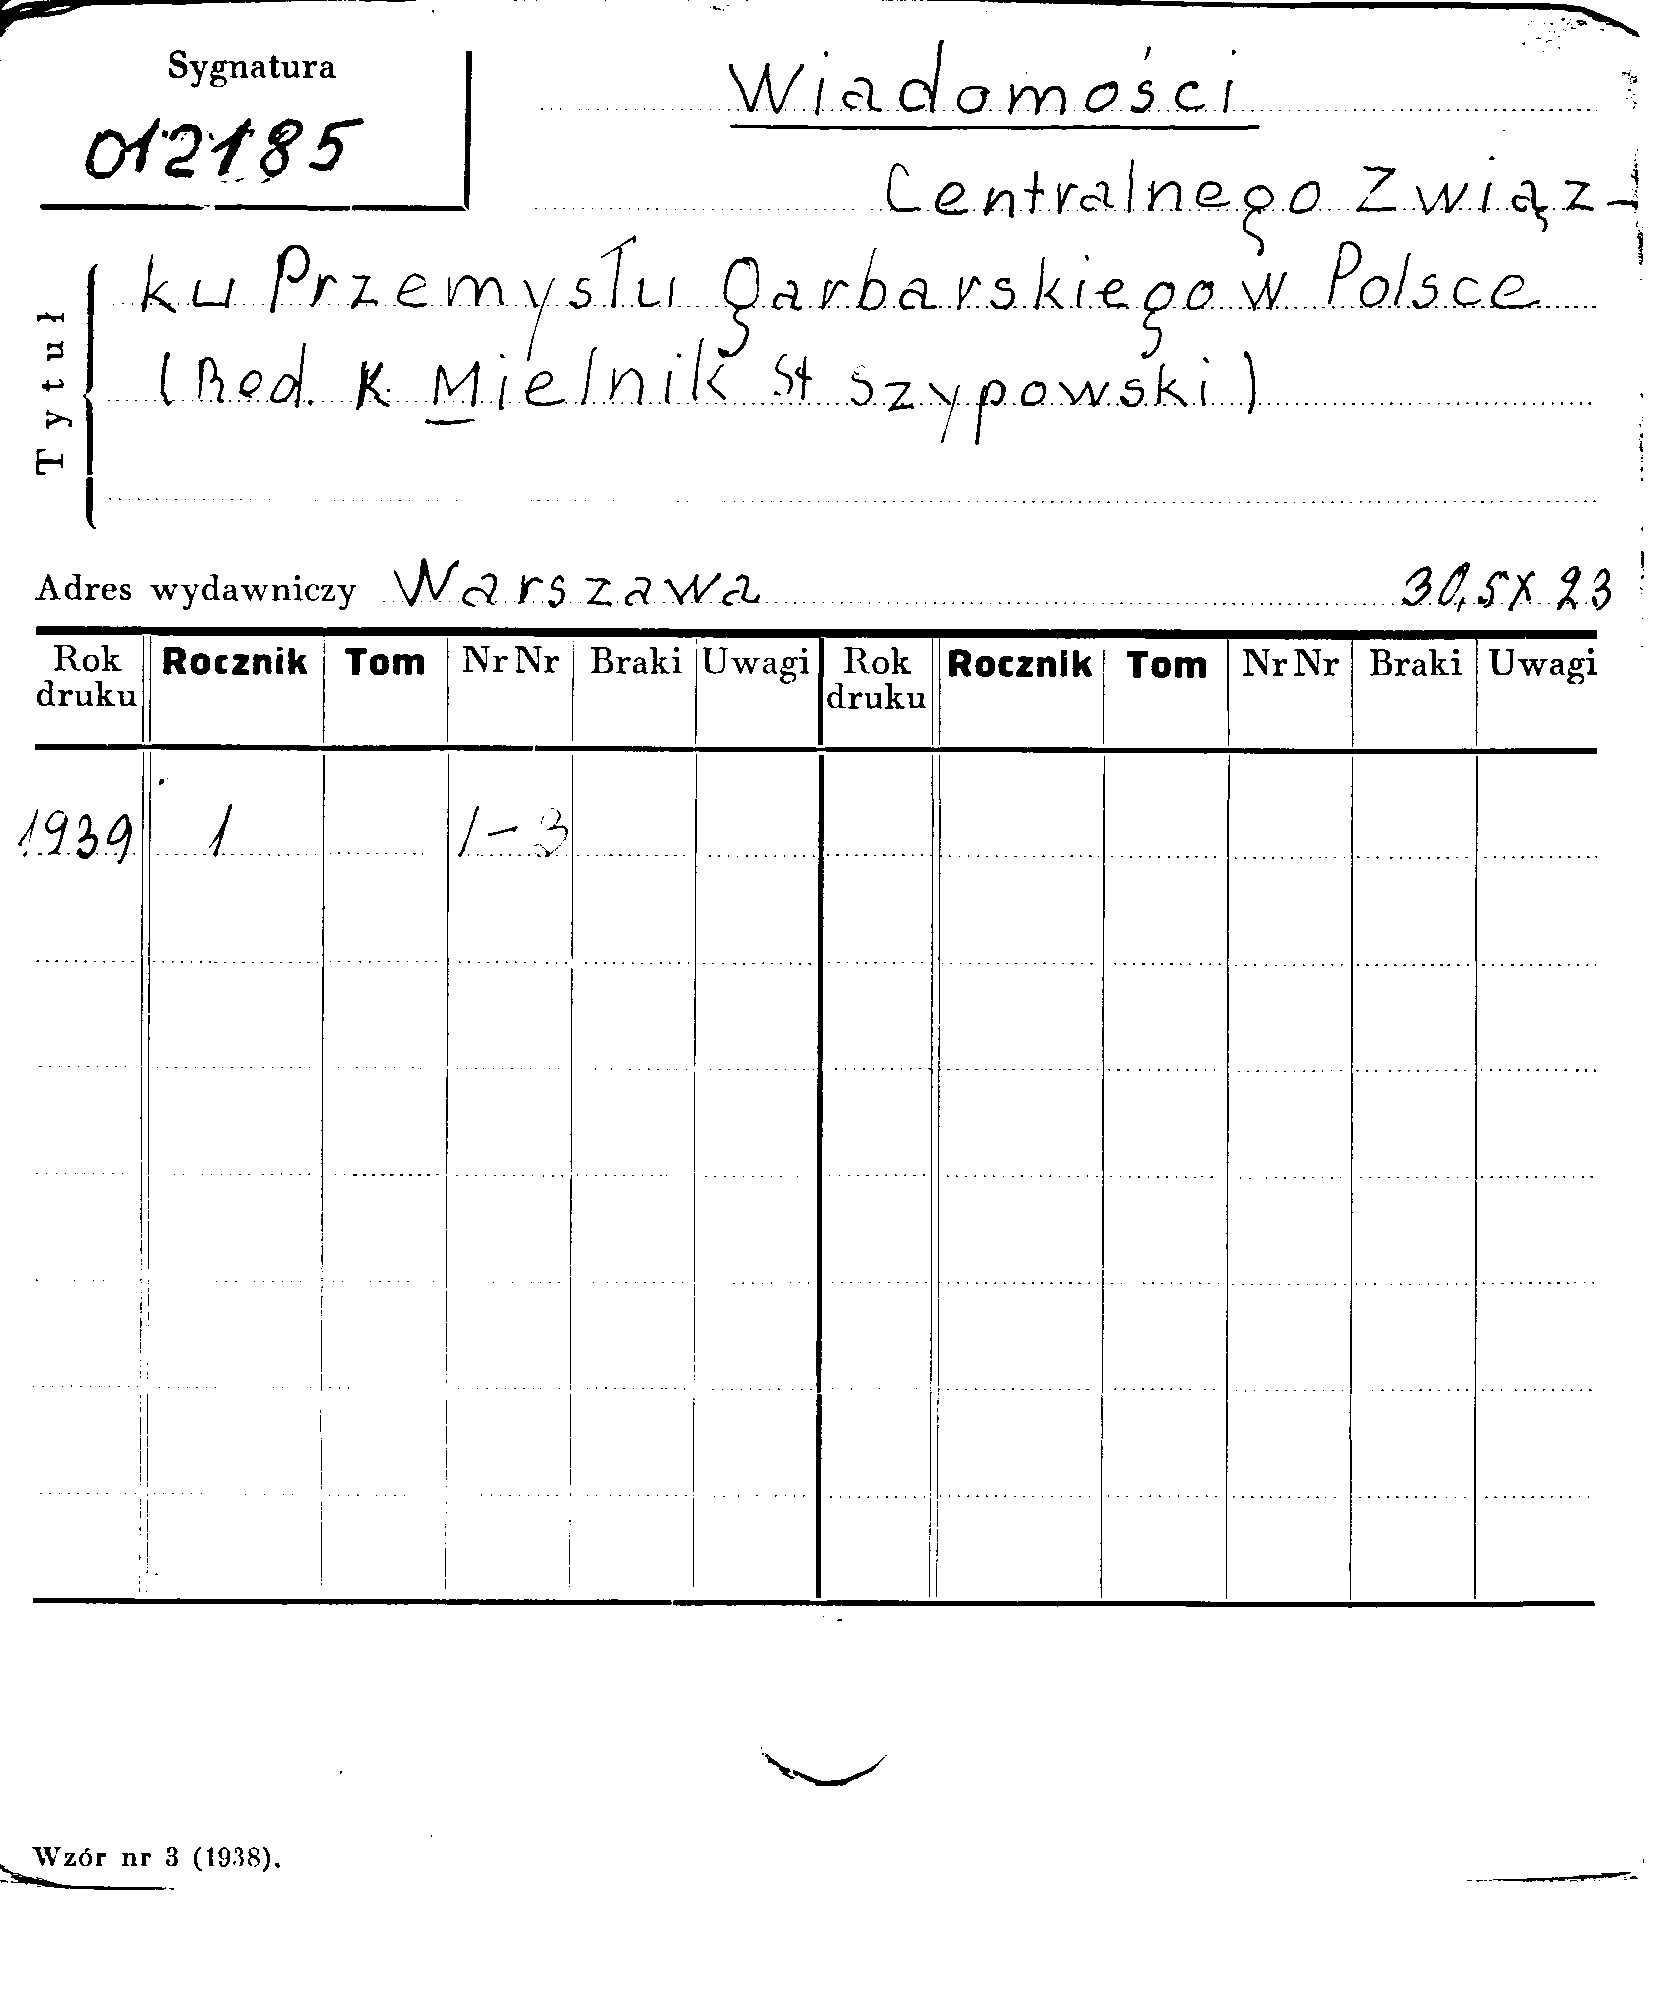 Sygnatura
012185
Wiadomości
Centralnego Związ-
ku Przemysłu Garbarskiego w Polsce
(Red. K Mielnik St Szypowski)
Tytuł
Adres wydawniczy Warszawa 30,5 x 23
Rok druku Rocznik Tom Nr Nr Braki Uwagi Rok druku Rocznik Tom Nr Nr Braki Uwagi
1939 1 1-3
Wzór nr 3 (1938).